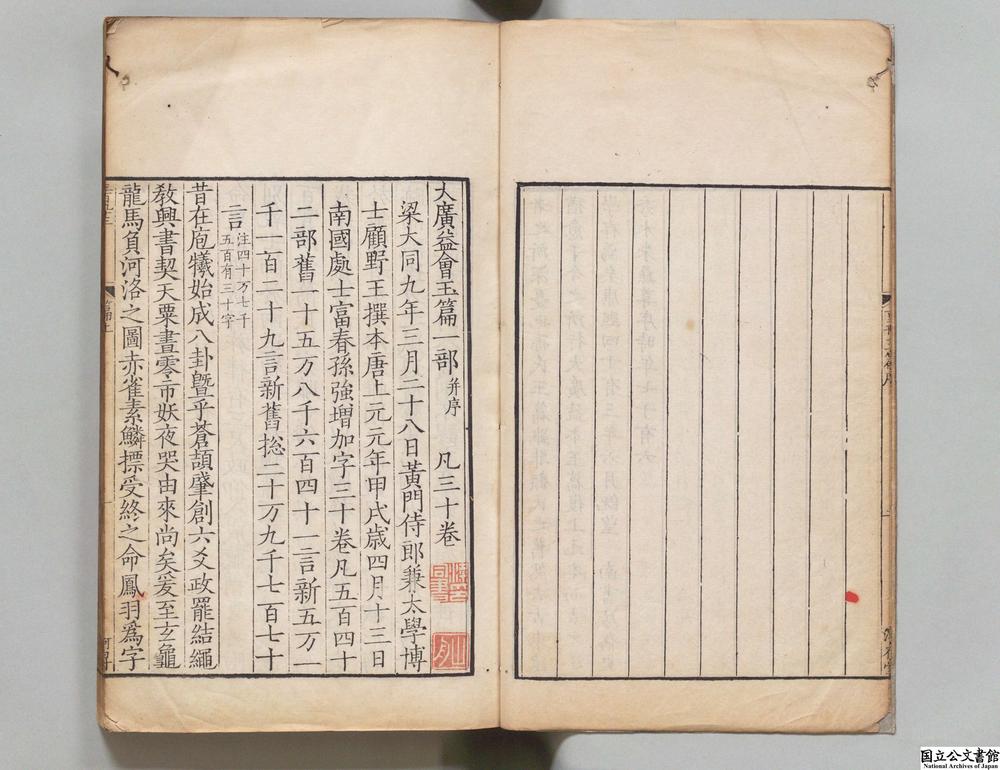 大廣益會玉篇一部并序 凡三十卷
梁大同九年三月二十八日黃門侍郎兼太學博
士顧野王撰本唐上元元年甲戌歳四月十三日
南國處士富春孫強增加字三十卷凡五百四十
二部舊一十五万八千六百四十一言新五万一
千一百二十九言新舊揔二十万九千七百七十
言注四十万七千
五百有三十字
昔在庖犧始成八卦曁乎蒼頡肇創六爻政罷結繩
敎興書契天粟晝零市妖夜哭由來尚矣爰至玄龜
龍馬負河洛之圖赤雀素鱗摽受終之命鳳羽爲字
国立公文書館
National Archives of Japan